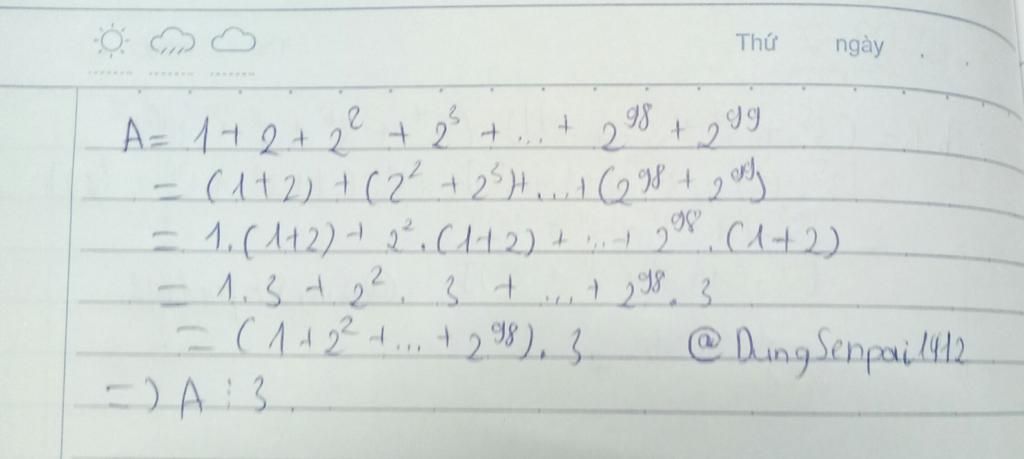 Thứ ngày
A = 1 + 2 + 2² + 2³ + ... + 2⁹⁸ + 2⁹⁹
= (1+2) + (2² + 2³) + ... + (2⁹⁸ + 2⁹⁹)
= 1.(1+2) + 2².(1+2) + ... + 2⁹⁸.(1+2)
= 1.3 + 2².3 + ... + 2⁹⁸.3
= (1 + 2² + ... + 2⁹⁸).3 @DungSenpai1412
=> A ⋮ 3.